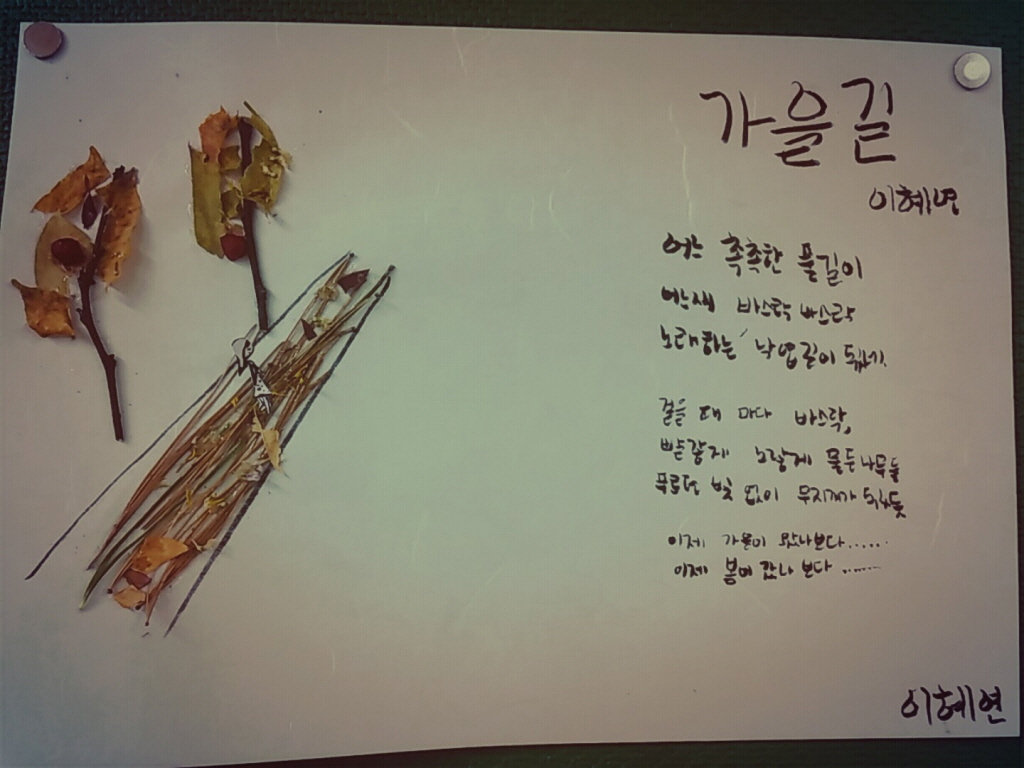 가을길
이혜연
어느 촉촉한 풀길이
어느새 바스락 바스락
노래하는 낙엽길이 되었네.
걸을 때 마다 바스락,
빨갛게 노랗게 물든 나무들
푸르던 빛 없이 무지개가 되
이제 가을이 왔나보다......
이제 봄이 갔나 보다 .......
이혜연